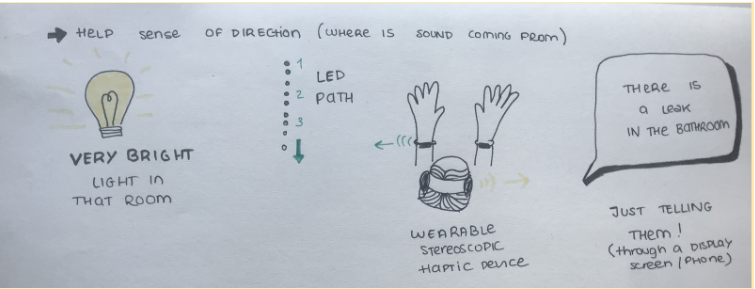 → HELP sense OF DIRECTION (WHERE IS SOUND COMING FROM)
VERY BRIGHT
LIGHT IN
THAT ROOM
1
2
3
LED
PATH
WEARABLE
STEREOSCOPIC
HAPTIC DEVICE
THERE IS
a LEAK
IN THE BATHROOM
JUST TELLING
THEM!
(through a DISPLAY
SCREEN / PHONE)